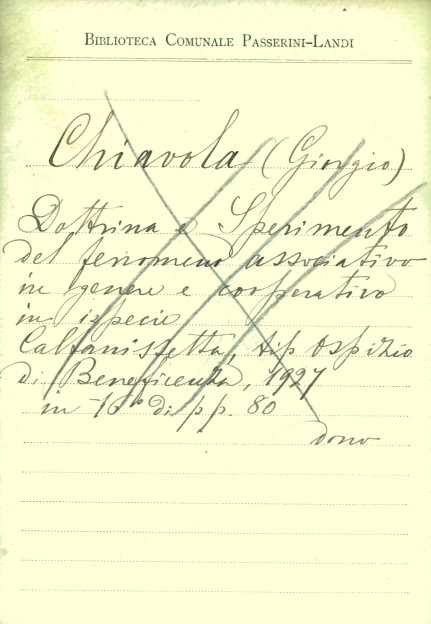 BIBLIOTECA COMUNALE PASSERINI-LANDI
Chiavola (Giorgio)
Dottrina e Sperimento
del fenomeno associativo
in genere e cooperativo
in ispecie
Caltanissetta, tip Ospizio
di Beneficenza, 1927
in-16° di pp. 80
dono